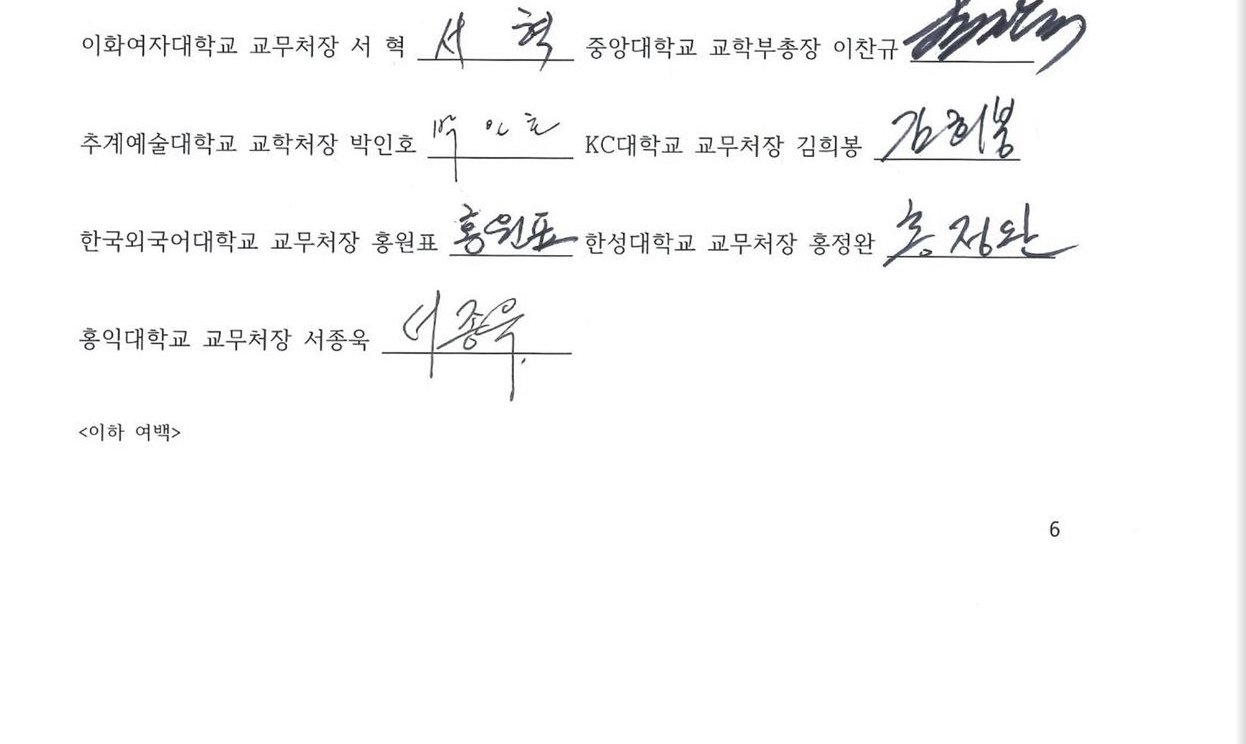 이화여자대학교 교무처장 서 혁 서 혁 중앙대학교 교학부총장 이찬규
추계예술대학교 교학처장 박인호 박인호 KC대학교 교무처장 김희봉 김희봉
한국외국어대학교 교무처장 홍원표 홍원표 한성대학교 교무처장 홍정완 홍정완
홍익대학교 교무처장 서종욱 서종욱
<이하 여백>
6